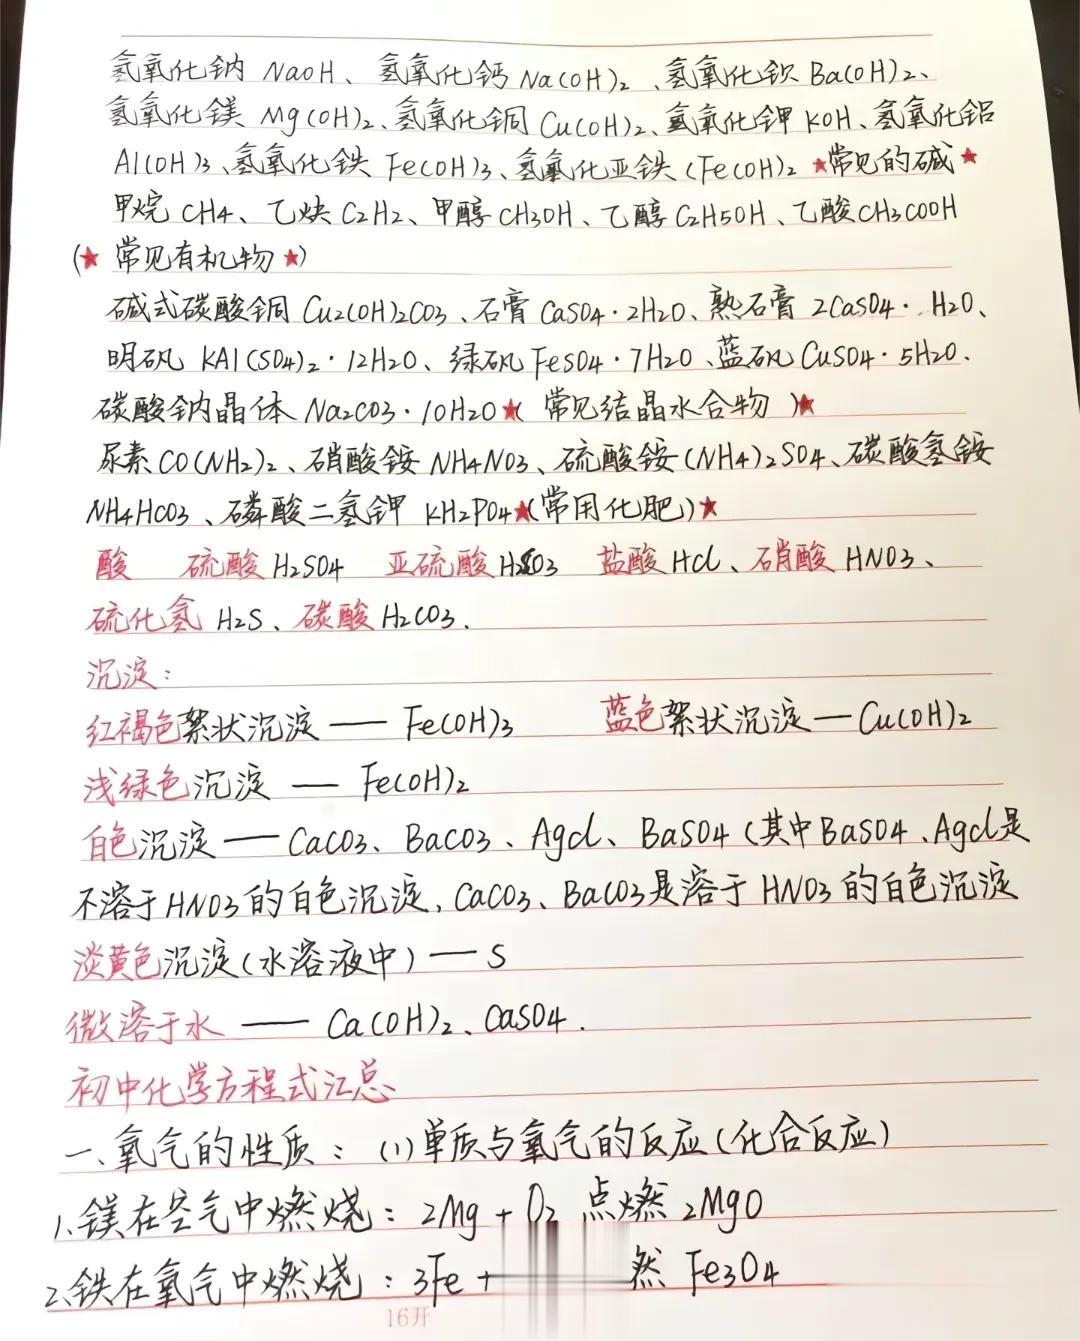 氢氧化钠 NaOH、氢氧化钙 Na(OH)2、氢氧化钡 Ba(OH)2、
氢氧化镁 Mg(OH)2、氢氧化铜 Cu(OH)2、氢氧化钾 KOH、氢氧化铝
Al(OH)3、氢氧化铁 Fe(OH)3、氢氧化亚铁 (Fe(OH)2 ★常见的碱★
甲烷 CH4、乙炔 C2H2、甲醇 CH3OH、乙醇 C2H5OH、乙酸 CH3COOH
(★ 常见有机物 ★)
碱式碳酸铜 Cu2(OH)2CO3、石膏 CaSO4·2H2O、熟石膏 2CaSO4·H2O、
明矾 KAl(SO4)2·12H2O、绿矾 FeSO4·7H2O、蓝矾 CuSO4·5H2O、
碳酸钠晶体 Na2CO3·10H2O★( 常见结晶水合物 )★
尿素 CO(NH2)2、硝酸铵 NH4NO3、硫酸铵 (NH4)2SO4、碳酸氢铵
NH4HCO3、磷酸二氢钾 KH2PO4★(常用化肥)★
酸 硫酸 H2SO4 亚硫酸 H2SO3 盐酸 HCl、硝酸 HNO3、
硫化氢 H2S、碳酸 H2CO3.
沉淀:
红褐色絮状沉淀 —— Fe(OH)3 蓝色絮状沉淀 — Cu(OH)2
浅绿色沉淀 — Fe(OH)2
白色沉淀 —— CaCO3、BaCO3、AgCl、BaSO4 (其中BaSO4、AgCl是
不溶于HNO3的白色沉淀, CaCO3、BaCO3是溶于 HNO3 的白色沉淀
淡黄色沉淀(水溶液中) — S
微溶于水 —— Ca(OH)2、CaSO4.
初中化学方程式汇总
一、氧气的性质: (1)单质与氧气的反应(化合反应)
1、镁在空气中燃烧: 2Mg + O2 点燃 2MgO
2、铁在氧气中燃烧: 3Fe + 然 Fe3O4
16开